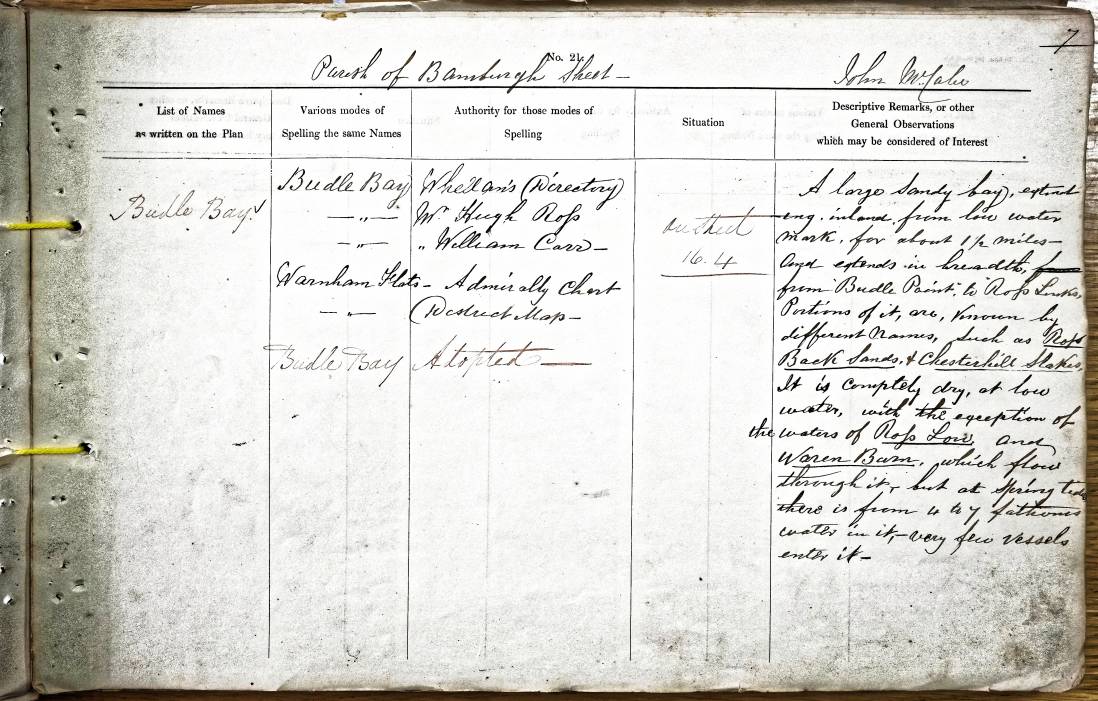 7
No. 21.
Parish of Bamburgh Sheet —
John McCabe
List of Names
as written on the Plan
Various modes of
Spelling the same Names
Authority for those modes of
Spelling
Situation
Descriptive Remarks, or other
General Observations
which may be considered of Interest
Budle Bay
Budle Bay Whellan's Directory
— " — Mr. Hugh Ross
— " — " William Carr —
Warnham Flats — Admiralty Chart
— " — District Map —
Budle Bay Adopted —
on Sheet
16.4
A large Sandy bay, extend
ing inland from low water
mark, for about 1½ miles —
and extends in breadth,
from Budle Point, to Ross Links,
Portions of it, are, known by
different Names, such as Ross
Back Sands, & Chesterhill Slakes,
It is completly dry, at low
water, with the exception of
the waters of Ross Low, and
Waren Burn, which flow
through it, but at Spring tides
there is from 4 to 7 fathoms
water in it, — very few vessels
enter it —